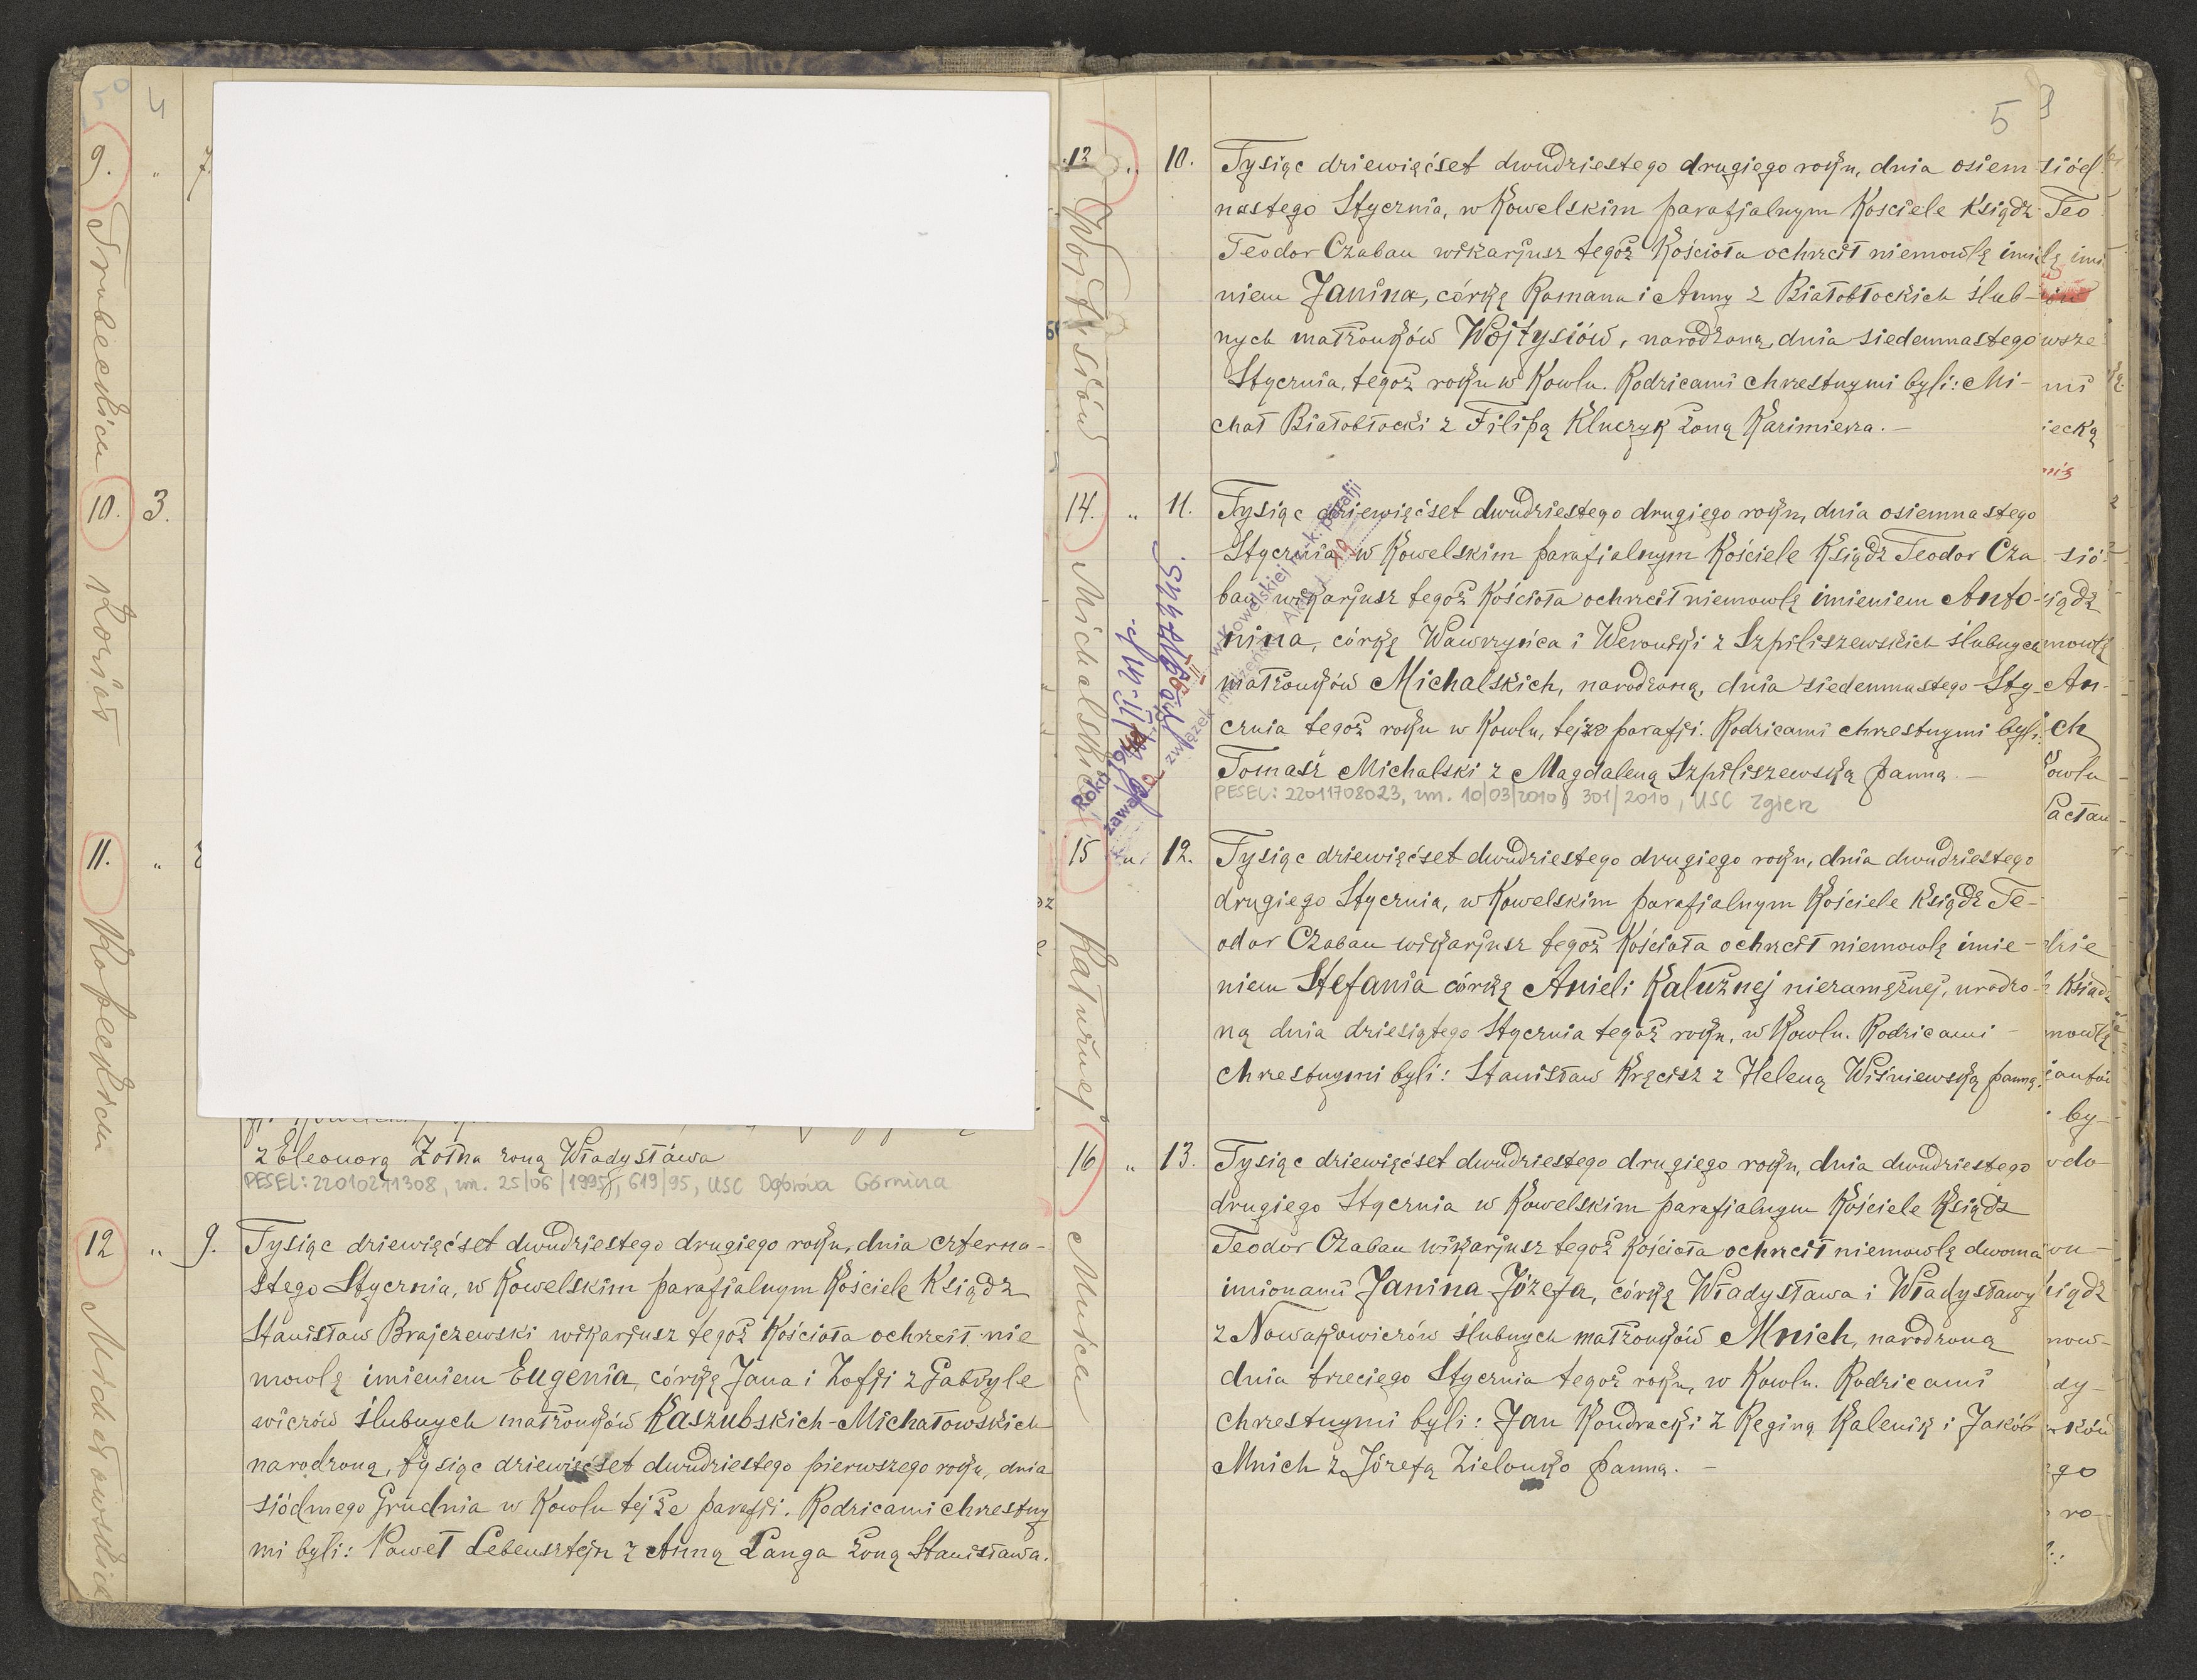 4
9.
"
7.
Trubeckich
10.
3.
Kozioł
11.
"
Kopeckich
z Eleonorą Żołna żoną Władysława
PESEL: 22010211308, zm. 25/06/1995, 619/95, USC Dąbrowa Górnicza
12
"
9.
Michałowskich
Tysiąc dziewięćset dwudziestego drugiego roku, dnia czterna-
stego Stycznia, w Kowelskim parafjalnym Kościele Ksiądz
Stanisław Brajczewski wikarjusz tegoż Kościoła ochrzcił nie
mowlę imieniem Eugenia, córkę Jana i Zofji z Gabryle
wiczów ślubnych małżonków Kaszubskich-Michałowskich
narodzoną, tysiąc dziewięćset dwudziestego pierwszego roku, dnia
siódmego Grudnia w Kowlu tejże parafji. Rodzicami chrzestny
mi byli: Paweł Lebensztejn z Anną Langa żoną Stanisława.
5
13
"
10.
Wojtysiów
Tysiąc dziewięćset dwudziestego drugiego roku, dnia osiem
nastego Stycznia, w Kowelskim parafjalnym Kościele Ksiądz
Teodor Czaban wikarjusz tegoż Kościoła ochrzcił niemowlę imie
niem Janina, córkę Romana i Anny z Białobłockich ślub-
nych małżonków Wojtysiów, narodzoną, dnia siedemnastego
Stycznia, tegoż roku w Kowlu. Rodzicami chrzestnymi byli: Mi-
chał Białobłocki z Filipą Kluczyk żoną Kazimierza. —
14.
"
11.
Michalskich
Tysiąc dziewięćset dwudziestego drugiego roku, dnia osiemnastego
Stycznia w Kowelskim parafjalnym Kościele Ksiądz Teodor Cza
ban wikarjusz tegoż Kościoła ochrzcił niemowlę imieniem Anto-
nina, córkę Wawrzyńca i Weroniki z Szpiliszewskich ślubnych
małżonków Michalskich, narodzoną, dnia siedemnastego Sty-
cznia tegoż roku w Kowlu, tejże parafji. Rodzicami chrzestnymi byli:
Tomasz Michalski z Magdaleną Szpiliszewską panną. —
PESEL: 22011708023, zm. 10/03/2010, 301/2010, USC Zgierz
Roku 19
zawarł
związek
w Kowelskiej rz.-k. parafji
15
"
12.
Kałużnej
Tysiąc dziewięćset dwudziestego drugiego roku, dnia dwudziestego
drugiego Stycznia, w Kowelskim parafjalnym Kościele Ksiądz Te-
odor Czaban wikarjusz tegoż Kościoła ochrzcił niemowlę imie-
niem Stefania córkę Anieli Kalużnej niezamężnej, urodzo-
ną dnia dziesiątego Stycznia tegoż roku, w Kowlu. Rodzicami —
chrzestnymi byli: Stanisław Kręcisz z Heleną Wiśniewską panną.
16
"
13.
Mnich
Tysiąc dziewięćset dwudziestego drugiego roku, dnia dwudziestego
drugiego Stycznia w Kowelskim parafjalnym Kościele Ksiądz
Teodor Czaban wikarjusz tegoż Kościoła ochrzcił niemowlę dwoma
imionami Janina-Józefa, córkę Władysława i Władysławy
z Nowakowiczów ślubnych małżonków Mnich, narodzoną
dnia trzeciego Stycznia tegoż roku, w Kowlu. Rodzicami
chrzestnymi byli: Jan Kondracki z Reginą Kalenik i Jakób
Mnich z Józefą Zielonko panną. —